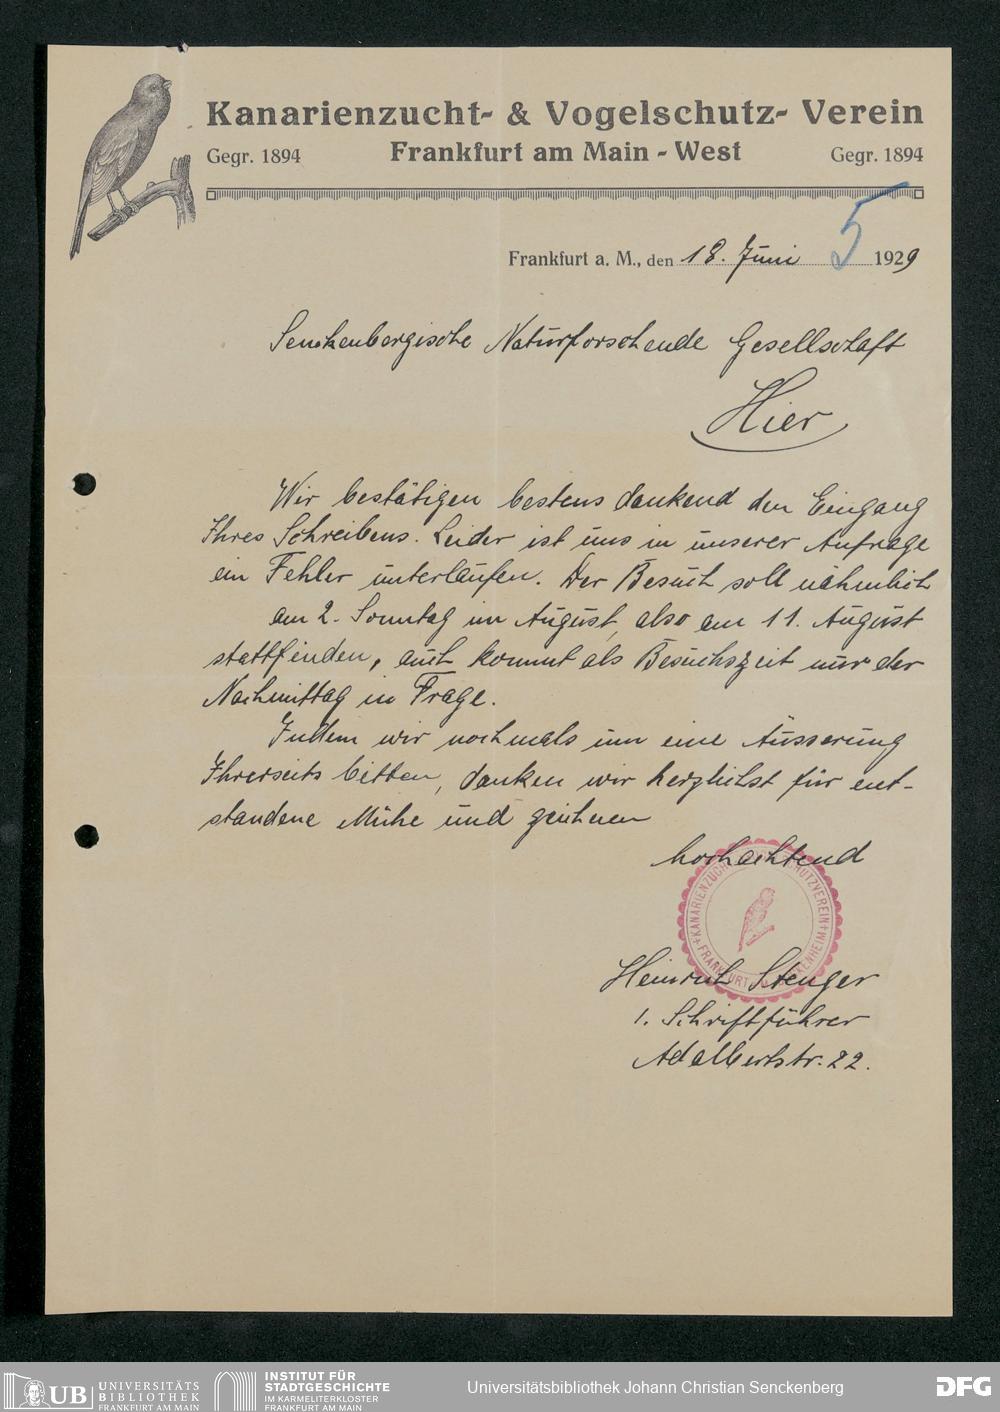 Kanarienzucht- & Vogelschutz- Verein
Gegr. 1894 Frankfurt am Main - West Gegr. 1894
5
Frankfurt a. M., den 18. Juni 1929
Senckenbergische Naturforschende Gesellschaft
Hier
Wir bestätigen bestens dankend den Eingang
Ihres Schreibens. Leider ist uns in unserer Anfrage
ein Fehler unterlaufen. Der Besuch soll nähmlich
am 2. Sonntag im August, also am 11. August
stattfinden, auch kommt als Besuchszeit nur der
Nachmittag in Frage.
Indem wir nochmals um eine Äusserung
Ihrerseits bitten, danken wir herzlichst für ent-
standene Mühe und zeichnen
hochachtend
KANARIENZUCHT VOGELSCHUTZVEREIN
FRANKFURT BOCKENHEIM
Heinrich Stenger
1. Schriftführer
Adalbertstr. 22.
UB UNIVERSITÄTS
BIBLIOTHEK
FRANKFURT AM MAIN
INSTITUT FÜR
STADTGESCHICHTE
IM KARMELITERKLOSTER
FRANKFURT AM MAIN
Universitätsbibliothek Johann Christian Senckenberg
DFG